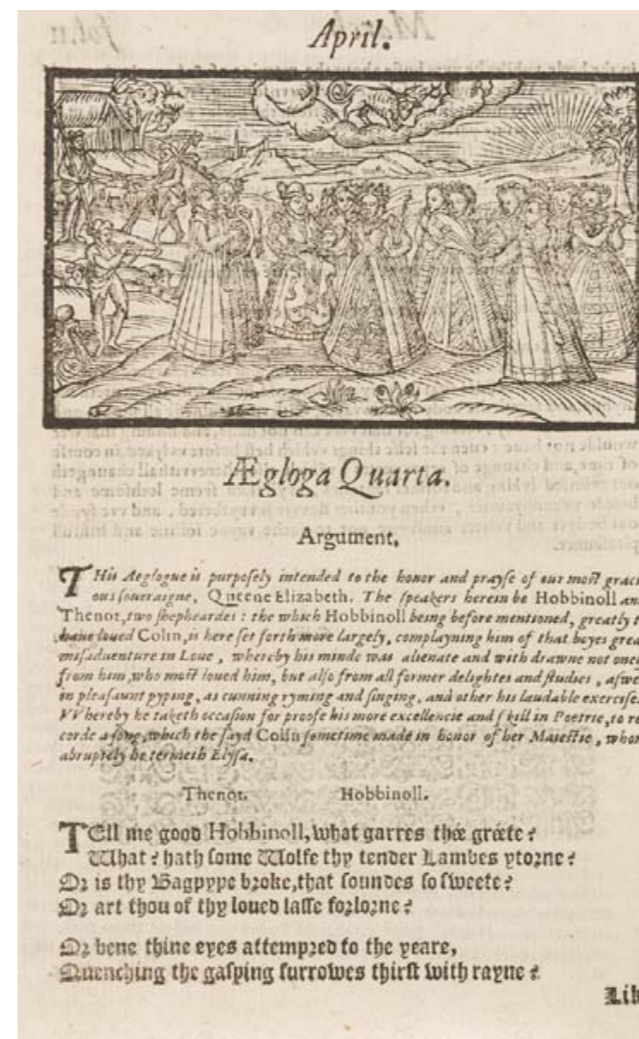 April.
Ægloga Quarta.
Argument.
THis Aeglogue is purposely intended to the honor and prayse of our most graci
ous souereigne, Queene Elizabeth. The speakers herein be Hobbinoll an
Thenot, two shepheardes: the which Hobbinoll being before mentioned, greatly t
haue loued Colin, is here set forth more largely, complayning him of that boyes grea
misaduenture in Loue, whereby his minde was alienate and with drawne not onel
from him, who most loued him, but also from all former delightes and studies, aswe
in pleasaunt pyping, as cunning ryming and singing, and other his laudable exercises
VVhereby he taketh occasion for proofe his more excellencie and skill in Poetrie, to re
corde a song, which the sayd Colin sometime made in honor of her Maiestie, whom
abruptely he termeth Elysa.
Thenot. Hobbinoll.
TEll me good Hobbinoll, what garres thée gréete?
What? hath some Wolfe thy tender Lambes ytorne?
Or is thy Bagpype broke, that soundes so sweete?
Or art thou of thy loued lasse forlorne?
Or bene thine eyes attempred to the yeare,
Quenching the gasping furrowes thirst with rayne?
Lik